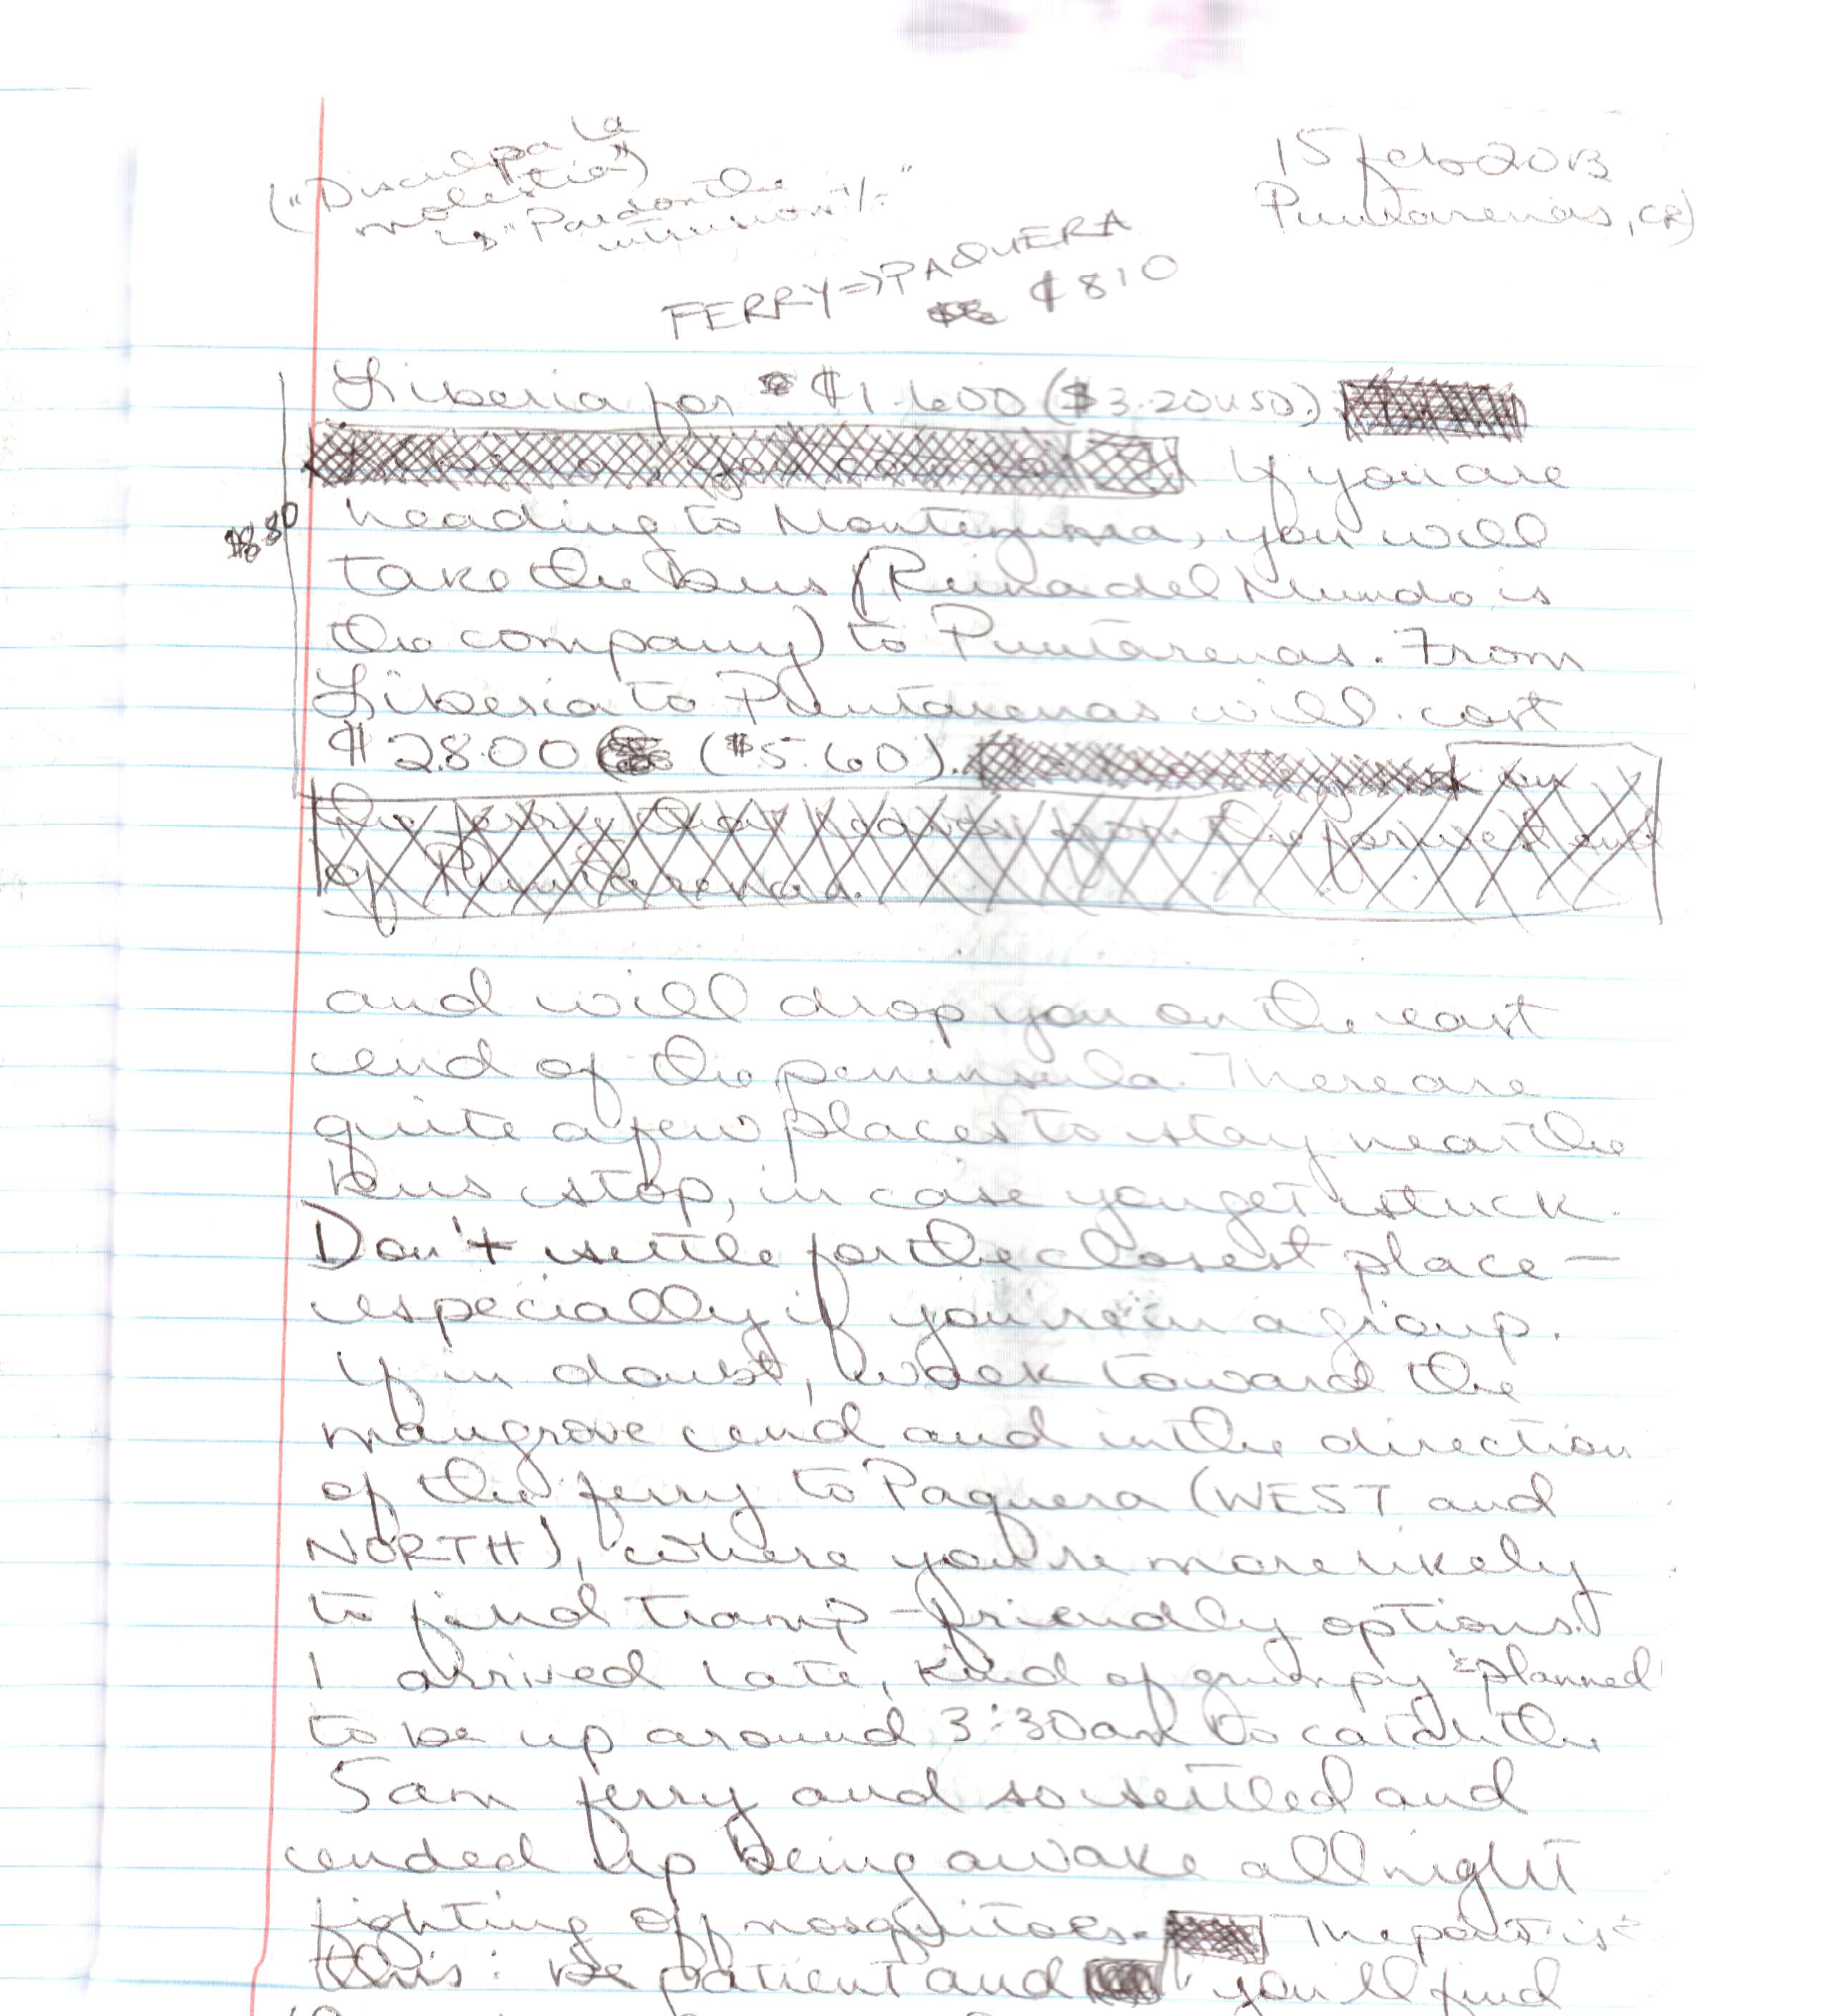 ("Disculpa la
molestia")
is "Pardon the
intrusion"
15 feb 2013
Puntarenas, CR)
FERRY => PAQUERA
₡810
Liberia for ₡1.600 ($3.20USD.)
If you are
heading to Montezuma, you will
take the bus (Reina del Mundo is
the company) to Puntarenas. From
Liberia to Puntarenas will cost
₡2800 ($5.60).
the ferry that leaves from the far west end
of Puntarenas.
and will drop you on the east
end of the peninsula. There are
quite a few places to stay near the
bus stop, in case you get stuck.
Don't settle for the closest place—
especially if you're in a group.
If in doubt, walk toward the
mangrove end and in the direction
of the ferry to Paquera (WEST and
NORTH), where you're more likely
to find tramp-friendly options.
I arrived late, kind of grumpy & planned
to be up around 3:30am to catch the
5am ferry and so settled and
ended up being awake all night
fighting off mosquitoes. The point is
this: be patient and you'll find